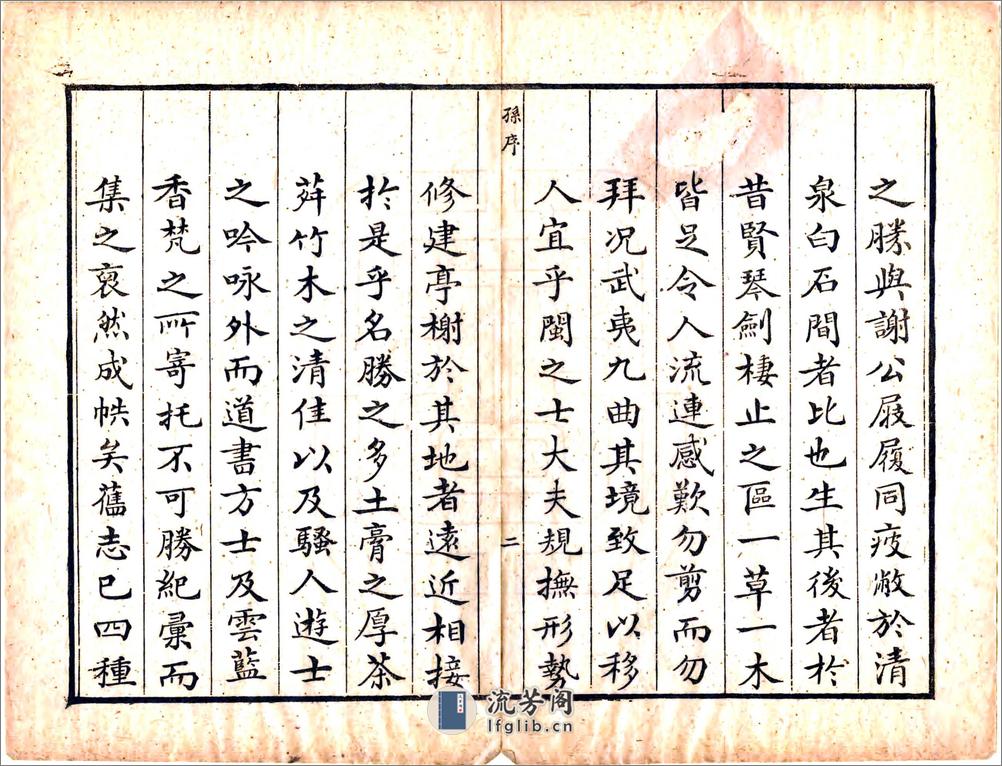 之勝與謝公屐履同疲敝於清
泉白石間者比也生其後者於
昔賢琴劍棲止之區一草一木
皆足令人流連感歎勿剪而勿
拜况武夷九曲其境致足以移
人宜乎閩之士大夫規撫形勢
孫序
二
修建亭榭於其地者遠近相接
於是乎名勝之多土膏之厚茶
荈竹木之清佳以及騷人遊士
之吟咏外而道書方士及雲藍
香梵之所寄托不可勝紀彙而
集之裒然成帙矣舊志已四種
流芳阁
lfglib.cn